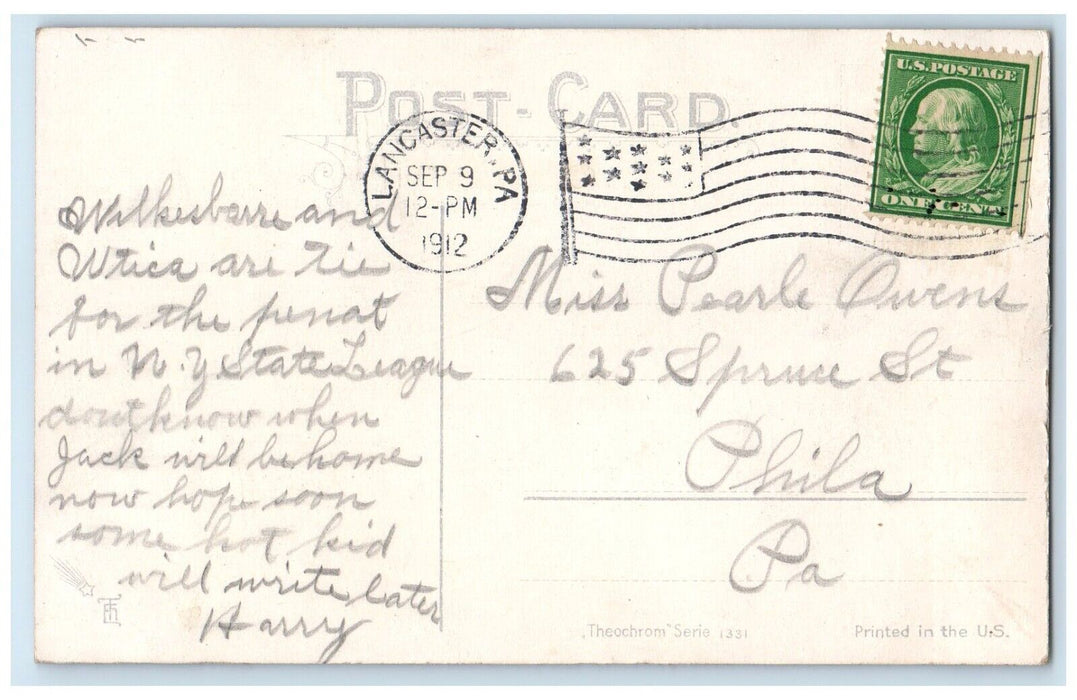 POST-CARD.
U.S. POSTAGE
ONE CENT
LANCASTER, PA
SEP 9
12-PM
1912
Wilkesbarre and
Utica are tie
for the penat
in N.Y State League
dont know when
Jack will be home
now hope soon
some hot kid
will write later
Harry
Miss Pearle Owens
625 Spruce St
Phila
Pa
"Theochrom" Serie 1331
Printed in the U.S.